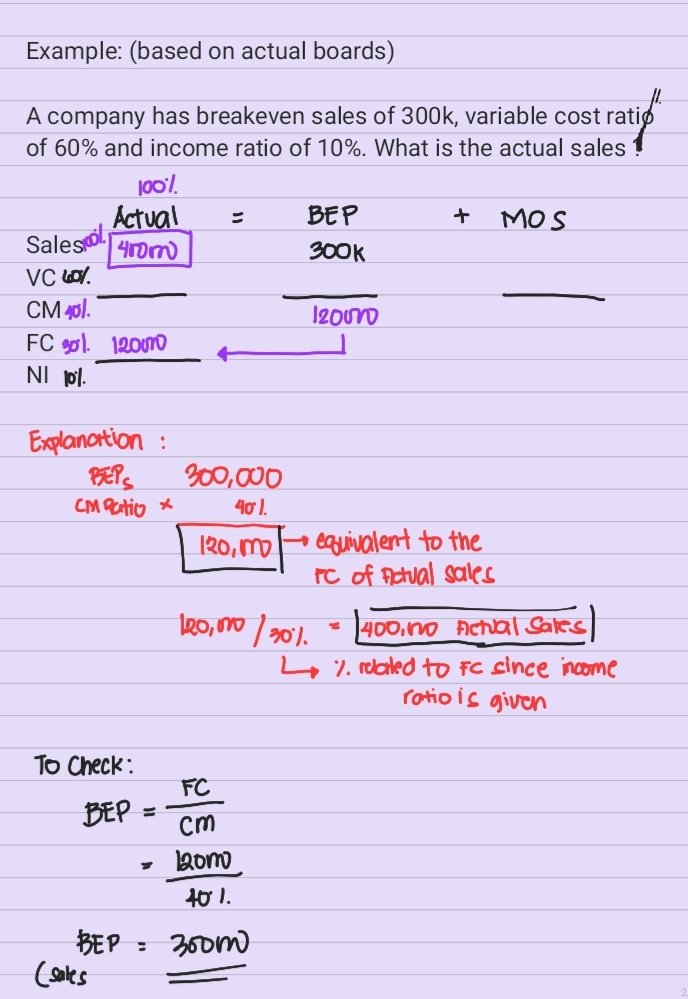 Example: (based on actual boards)
A company has breakeven sales of 300k, variable cost ratio
of 60% and income ratio of 10%. What is the actual sales ?
100%
Actual = BEP + MOS
Sales 100% 400000 300k
VC 60%
CM 40% 120000
FC 30% 120000
NI 10%
Explanation :
BEPs 300,000
CM Ratio × 40%
120,000 → equivalent to the
FC of Actual sales
120,000 / 30% = 400,000 Actual Sales
% related to FC since income
ratio is given
To Check:
BEP = FC
CM
= 120000
40%
BEP = 300000
(sales
2